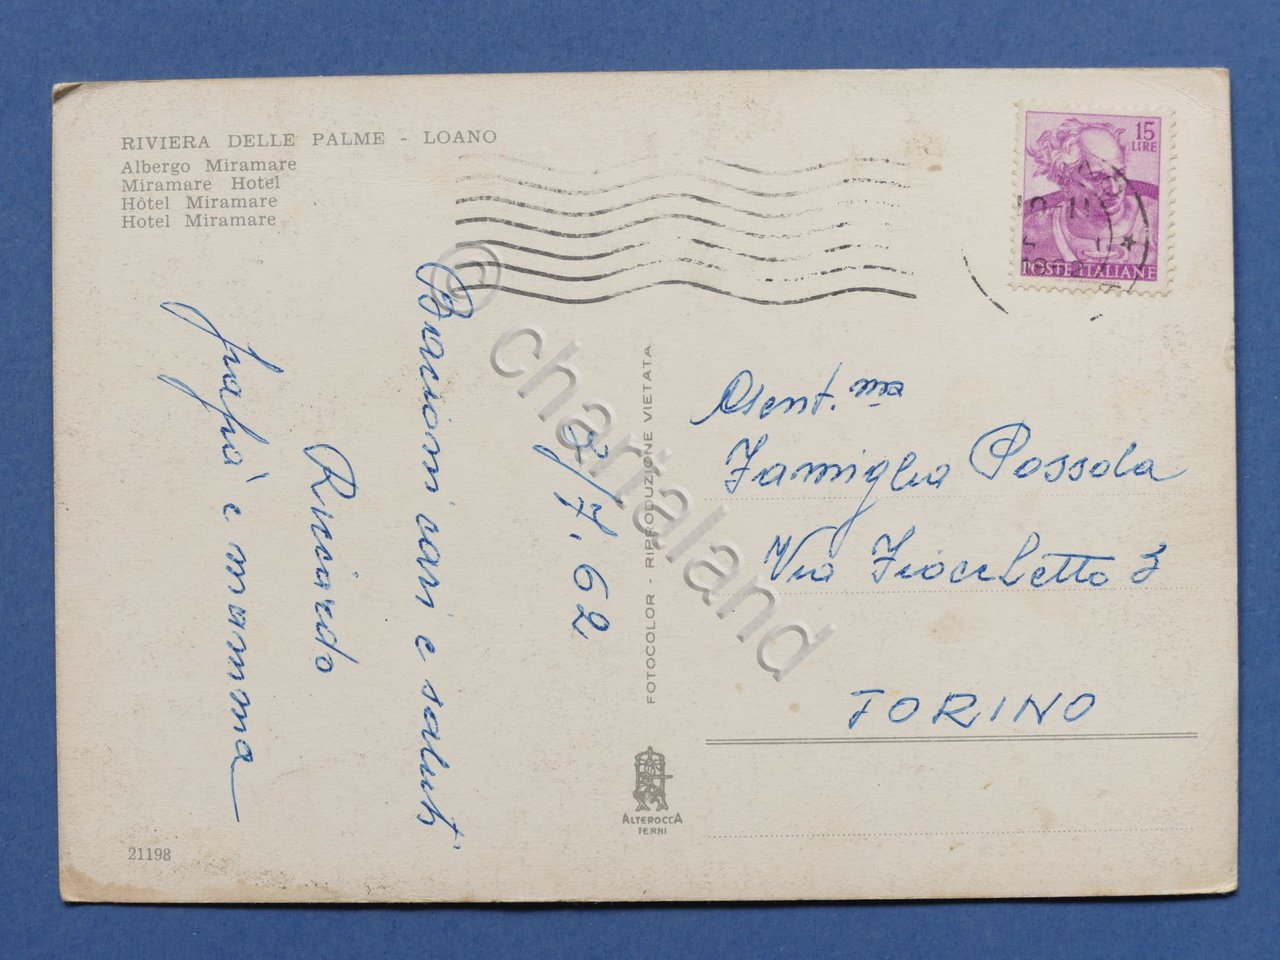 RIVIERA DELLE PALME - LOANO
Albergo Miramare
Miramare Hotel
Hôtel Miramare
Hotel Miramare
15
LIRE
POSTE ITALIANE
2/7.62
Bacioni cari e saluti
Riccardo
papà e mamma
Gent.ma
Famiglia Possola
Via Fiochetto 3
TORINO
FOTOCOLOR - RIPRODUZIONE VIETATA
ALTEROCCA
TERNI
21198
© chartaland